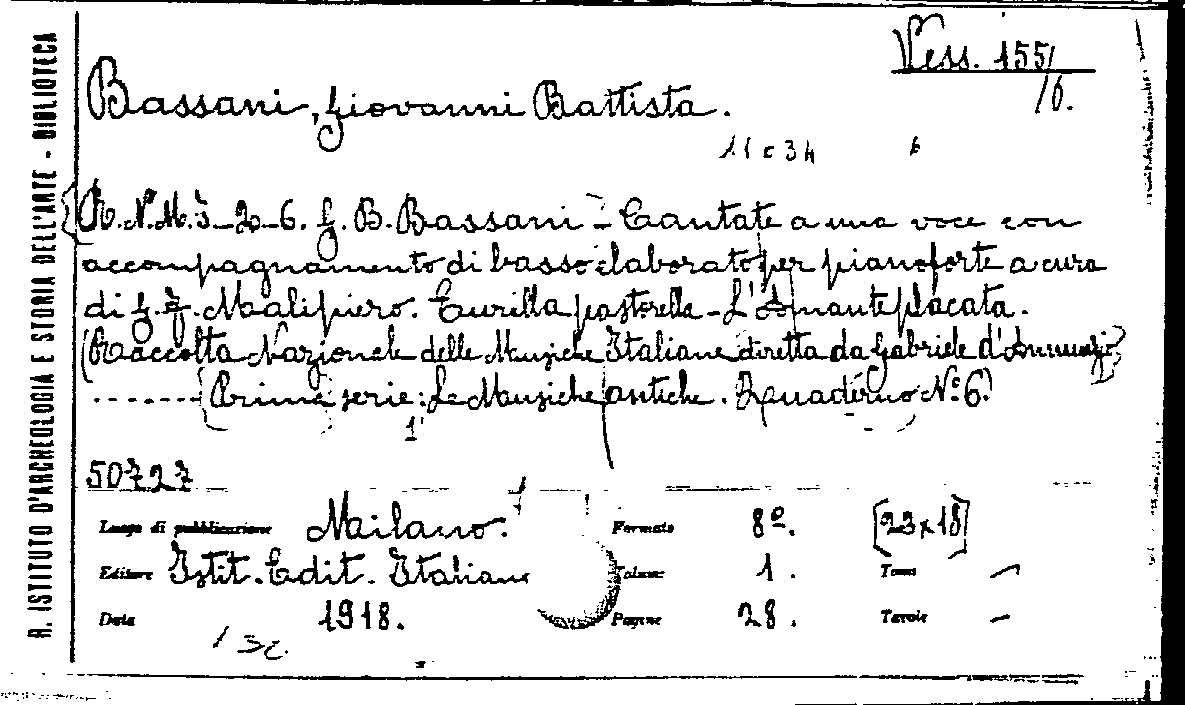 R. ISTITUTO D'ARCHEOLOGIA E STORIA DELL'ARTE - BIBLIOTECA
Vess. 155/
/6.
Bassani, Giovanni Battista.
11 c 34
R.N.M.I-2-6. G. B. Bassani - Cantate a una voce con
accompagnamento di basso elaborato per pianoforte a cura
di G. F. Malipiero. Eurilla pastorella - L'Amante placata.
(Raccolta Nazionale delle Musiche Italiane diretta da Gabriele d'Annunzio)
(Prima serie: Le Musiche antiche. Quaderno No. 6)
50727
Luogo di pubblicazione Milano. Formato 8º. [23x18]
Editore Istit. Edit. Italiano Volume 1. Tomo —
Data 1918. Pagine 28. Tavole —